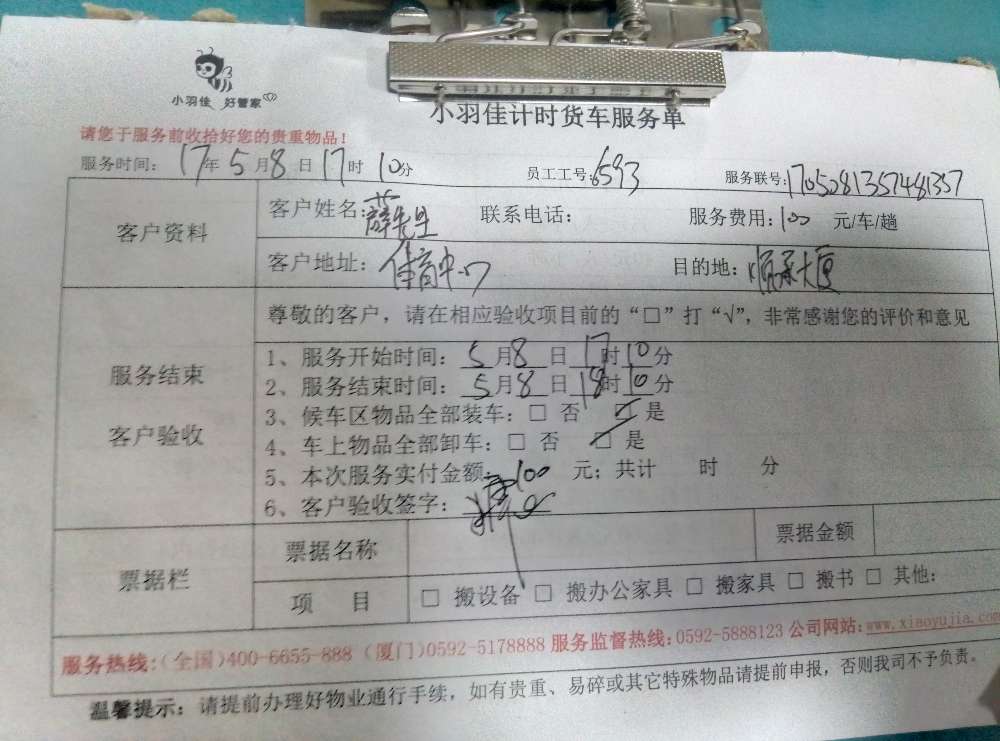 小羽佳 好管家
小羽佳计时货车服务单
请您于服务前收拾好您的贵重物品！
服务时间：17年5月8日17时10分 员工工号：6593 服务联号：1705081357481357
客户资料
客户姓名：薛先生 联系电话： 服务费用：100 元/车/趟
客户地址：体育中心 目的地：顺承大厦
服务结束
客户验收
尊敬的客户，请在相应验收项目前的“□”打“√”，非常感谢您的评价和意见
1、服务开始时间：5月8日17时10分
2、服务结束时间：5月8日18时10分
3、候车区物品全部装车：□ 否 ☑ 是
4、车上物品全部卸车：□ 否 ☑ 是
5、本次服务实付金额：100 元；共计 时 分
6、客户验收签字：
票据栏
票据名称 票据金额
项 目 □ 搬设备 □ 搬办公家具 □ 搬家具 □ 搬书 □ 其他：
服务热线：（全国）400-6655-888（厦门）0592-5178888 服务监督热线：0592-5888123 公司网站：www.xiaoyujia.com
温馨提示：请提前办理好物业通行手续，如有贵重、易碎或其它特殊物品请提前申报，否则我司不予负责。